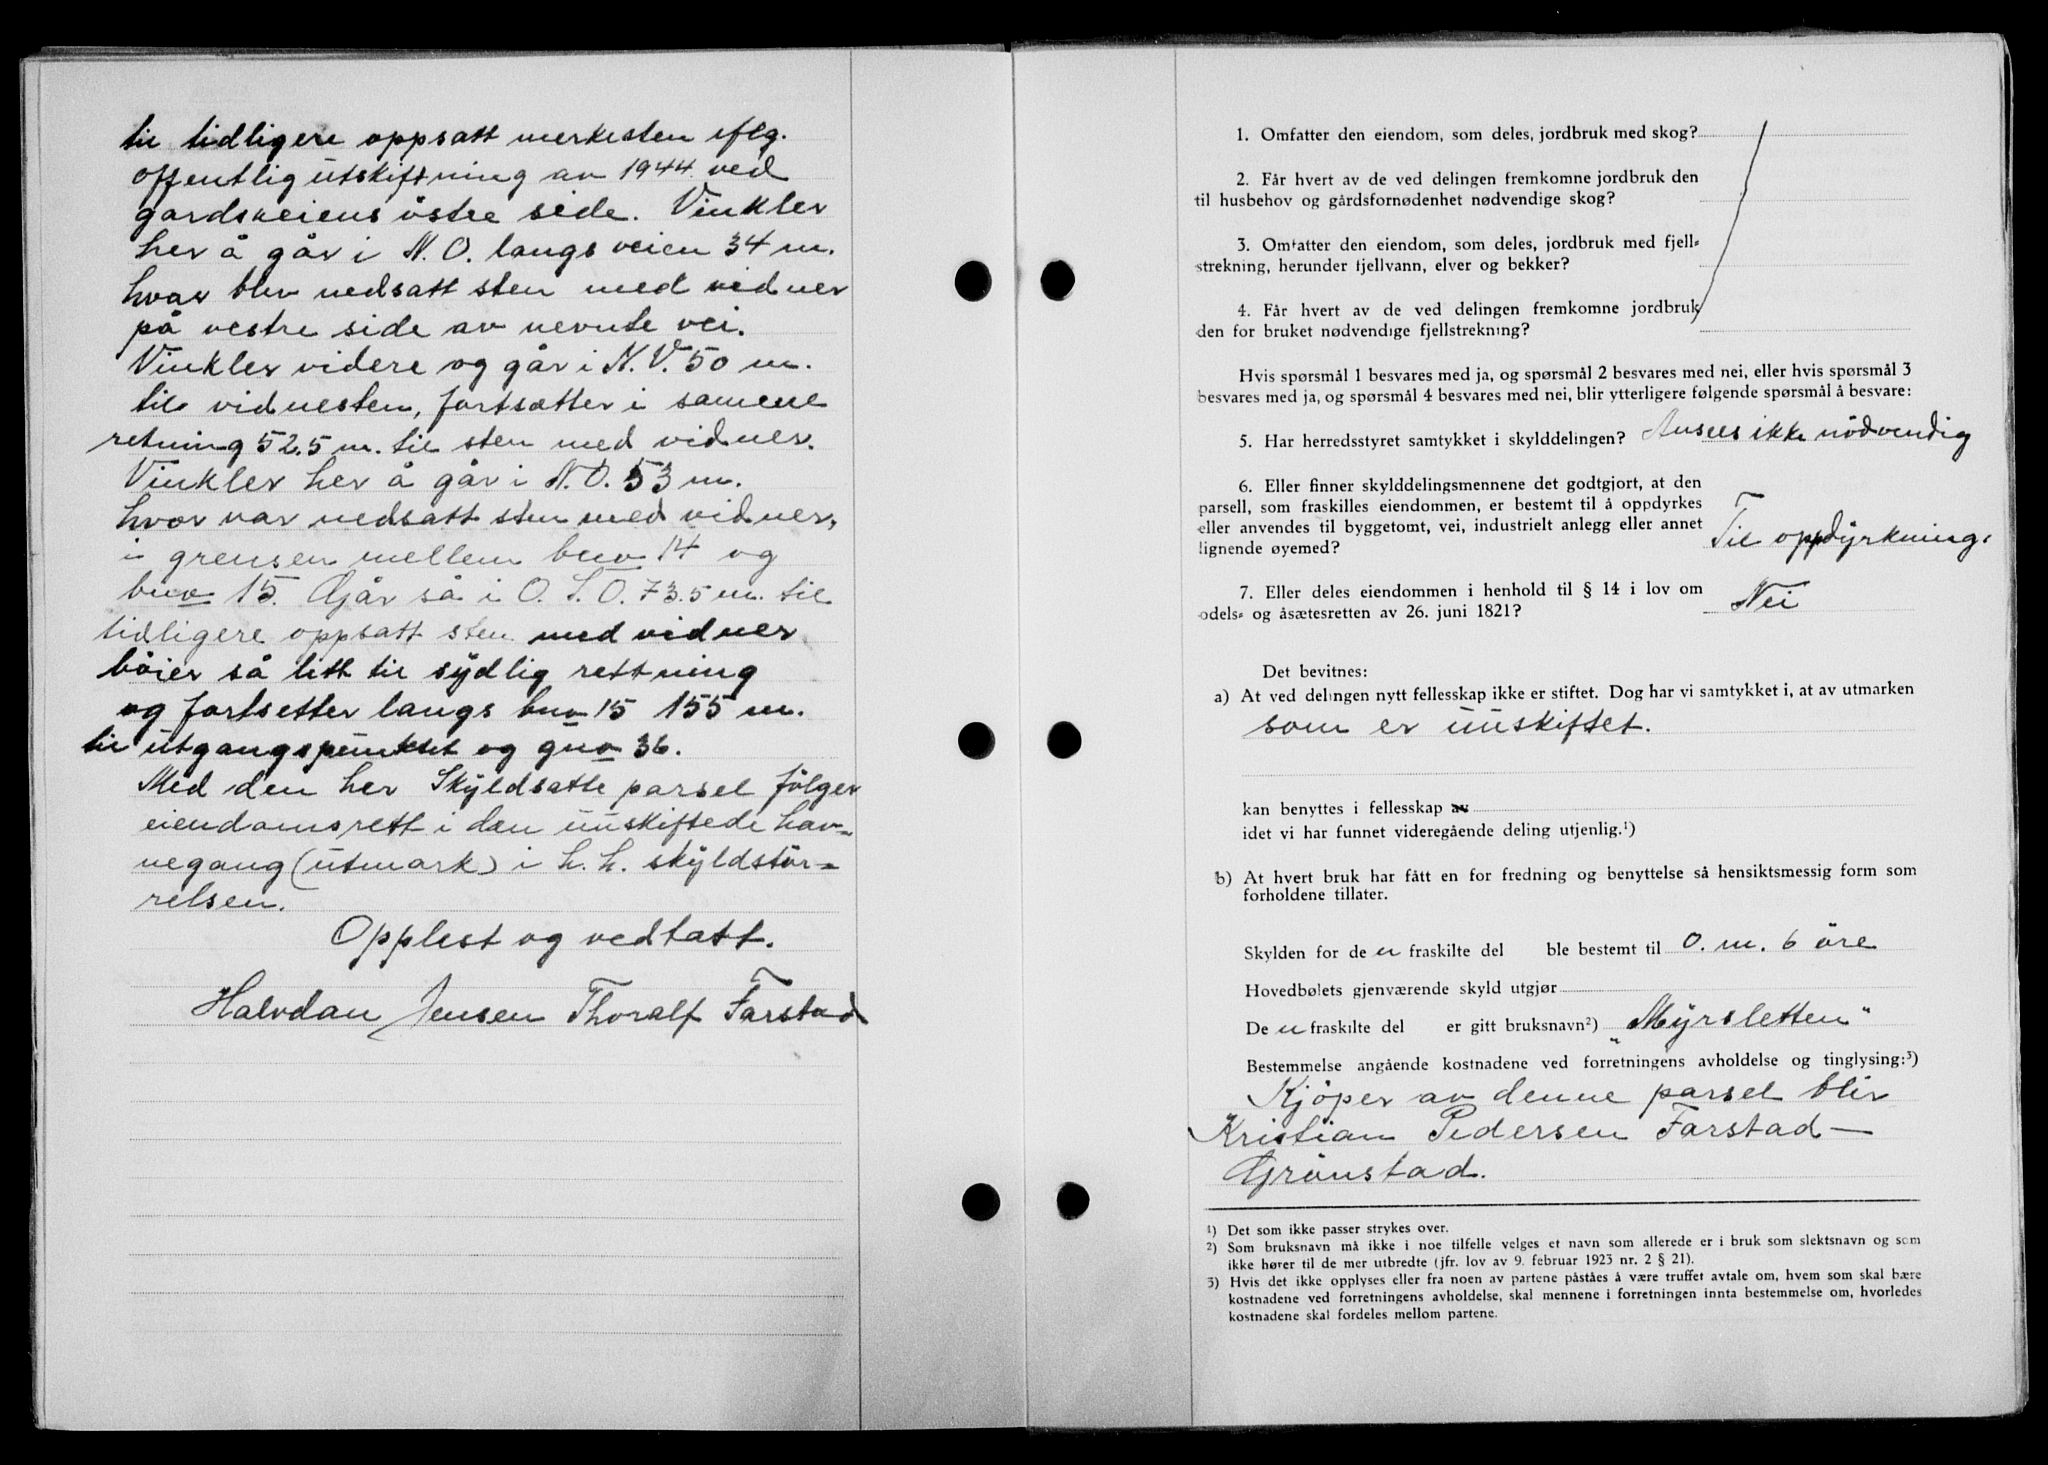 til tidligere oppsatt merkesten iflg.
offentlig utskiftning av 1944 ved
gardsveiens östre side. Vinkler
her å går i N.O. langs veien 34 m.
hvor blev nedsatt sten med vidner
på vestre side av nevnte vei.
Vinkler videre og går i N.V. 50 m.
til vidnesten, fortsetter i samme
retning 52.5 m. til sten med vidner.
Vinkler her å går i N.O. 53 m.
hvor var nedsatt sten med vidner,
i grensen mellem bno 14 og
bno 15. Går så i O.S.O. 73.5 m. til
tidligere oppsatt sten med vidner
böier så litt til sydlig rettning
og fortsetter langs bno 15 155 m.
til utgangspunktet og gno 36.
Med den her Skyldsatte parsel fölger
eiendomsrett i den uuskiftede hav-
negang (utmark) i h.h. skyldstör-
relsen.
Opplest og vedtatt.
Halvdan Jensen Thoralf Farstad
1. Omfatter den eiendom, som deles, jordbruk med skog?
2. Får hvert av de ved delingen fremkomne jordbruk den
til husbehov og gårdsfornødenhet nødvendige skog?
3. Omfatter den eiendom, som deles, jordbruk med fjell-
strekning, herunder fjellvann, elver og bekker?
4. Får hvert av de ved delingen fremkomne jordbruk
den for bruket nødvendige fjellstrekning?
Hvis spørsmål 1 besvares med ja, og spørsmål 2 besvares med nei, eller hvis spørsmål 3
besvares med ja, og spørsmål 4 besvares med nei, blir ytterligere følgende spørsmål å besvare:
5. Har herredsstyret samtykket i skylddelingen? Ansees ikke nödvendig
6. Eller finner skylddelingsmennene det godtgjort, at den
parsell, som fraskilles eiendommen, er bestemt til å oppdyrkes
eller anvendes til byggetomt, vei, industrielt anlegg eller annet
lignende øyemed? Til oppdyrkning.
7. Eller deles eiendommen i henhold til § 14 i lov om
odels- og åsætesretten av 26. juni 1821? Nei
Det bevitnes:
a) At ved delingen nytt fellesskap ikke er stiftet. Dog har vi samtykket i, at av utmarken
som er uuskiftet.
kan benyttes i fellesskap av
idet vi har funnet videregående deling utjenlig.¹)
b) At hvert bruk har fått en for fredning og benyttelse så hensiktsmessig form som
forholdene tillater.
Skylden for de n fraskilte del ble bestemt til 0. m. 6 öre
Hovedbølets gjenværende skyld utgjør
De n fraskilte del er gitt bruksnavn²) „Myrsletten"
Bestemmelse angående kostnadene ved forretningens avholdelse og tinglysing:³)
Kjöper av denne parsel blir
Kristian Pedersen Farstad -
Grönstad.
¹) Det som ikke passer strykes over.
²) Som bruksnavn må ikke i noe tilfelle velges et navn som allerede er i bruk som slektsnavn og som
ikke hører til de mer utbredte (jfr. lov av 9. februar 1923 nr. 2 § 21).
³) Hvis det ikke opplyses eller fra noen av partene påståes å være truffet avtale om, hvem som skal bære
kostnadene ved forretningens avholdelse, skal mennene i forretningen innta bestemmelse om, hvorledes
kostnadene skal fordeles mellom partene.